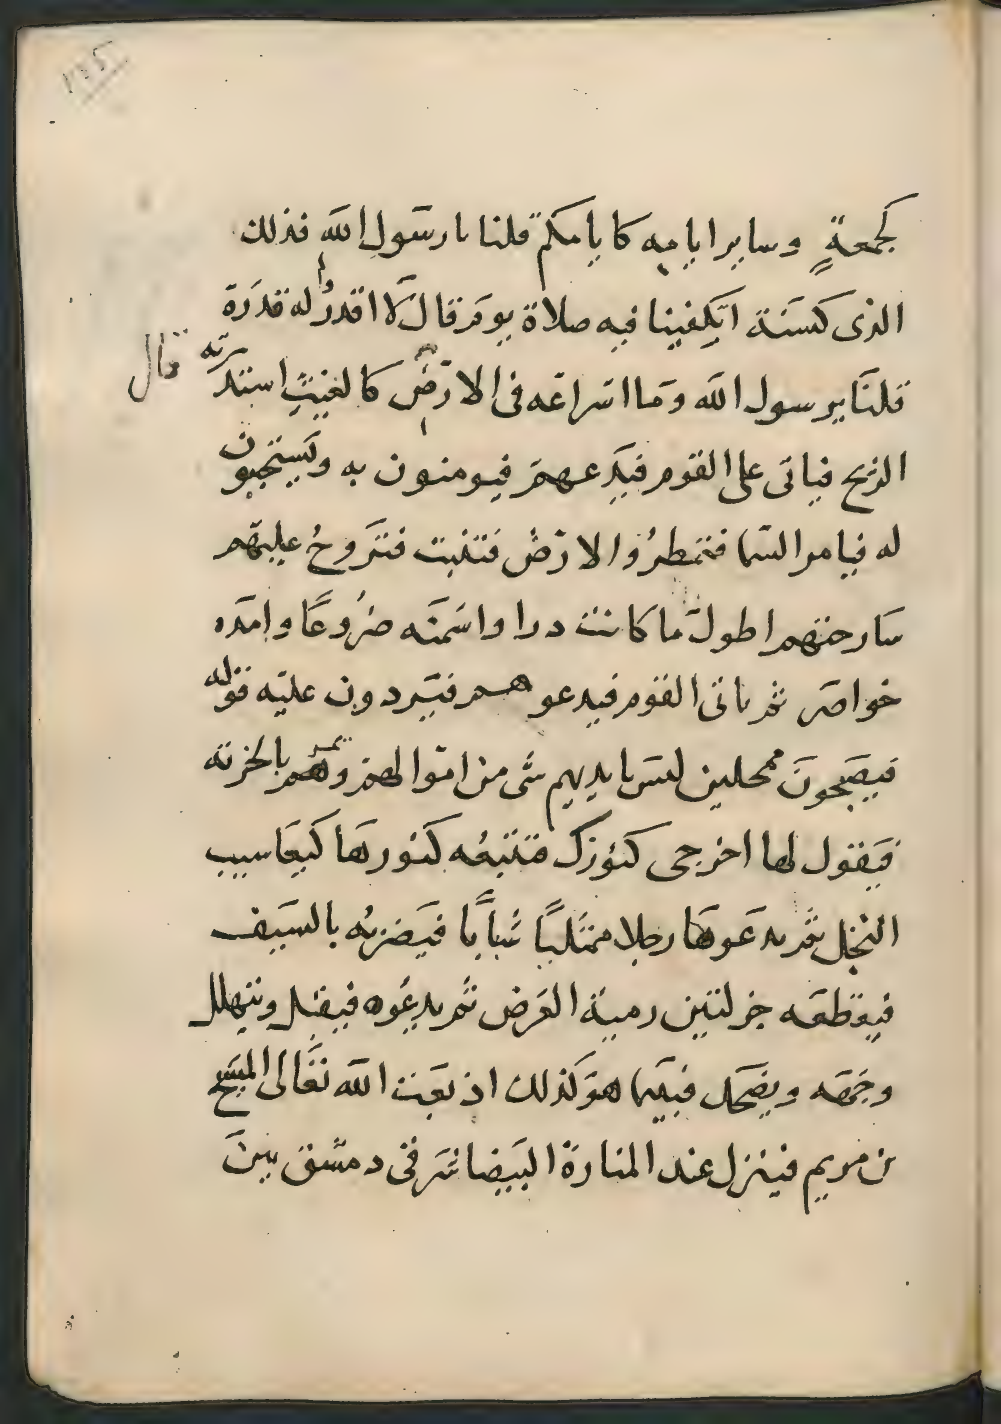 كجمعةٍ وساير ايامه كايامكم قلنا يا رسول الله فذلك
الذى كسنة اتكفينا فيه صلاة يوم قال لا اقدروا له قدره
قلنا يرسول الله وما اسراعه فى الارض كالغيث استدبرته
قال
الريح فياتى على القوم فيدعهم فيومنون به ويستجيبون
له فيامر السما فتمطرُ والارض فتنبت فتروحُ عليهم
سارحتهم اطول ما كانت درا واسمنه ضروعًا وامده
خواصر ثم ياتى القوم فيدعوهم فيردون عليه قوله
فيصبحون ممحلين ليس بايديهم شى من اموالهم ويمر بالخربه
فيقول لها اخرجى كنوزك فتتبعه كنوزها كيعاسيب
النخل ثم يدعوها رجلا ممتليًا شبابًا فيضربه بالسيف
فيقطعه جزلتين رمية الغرض ثم يدعوه فيقبل ويتهلل
وجهه ويضحك فبينما هو كذلك اذ بعث الله تعالى المسيح
بن مريم فينزل عند المنارة البيضا شرقى دمشق بين